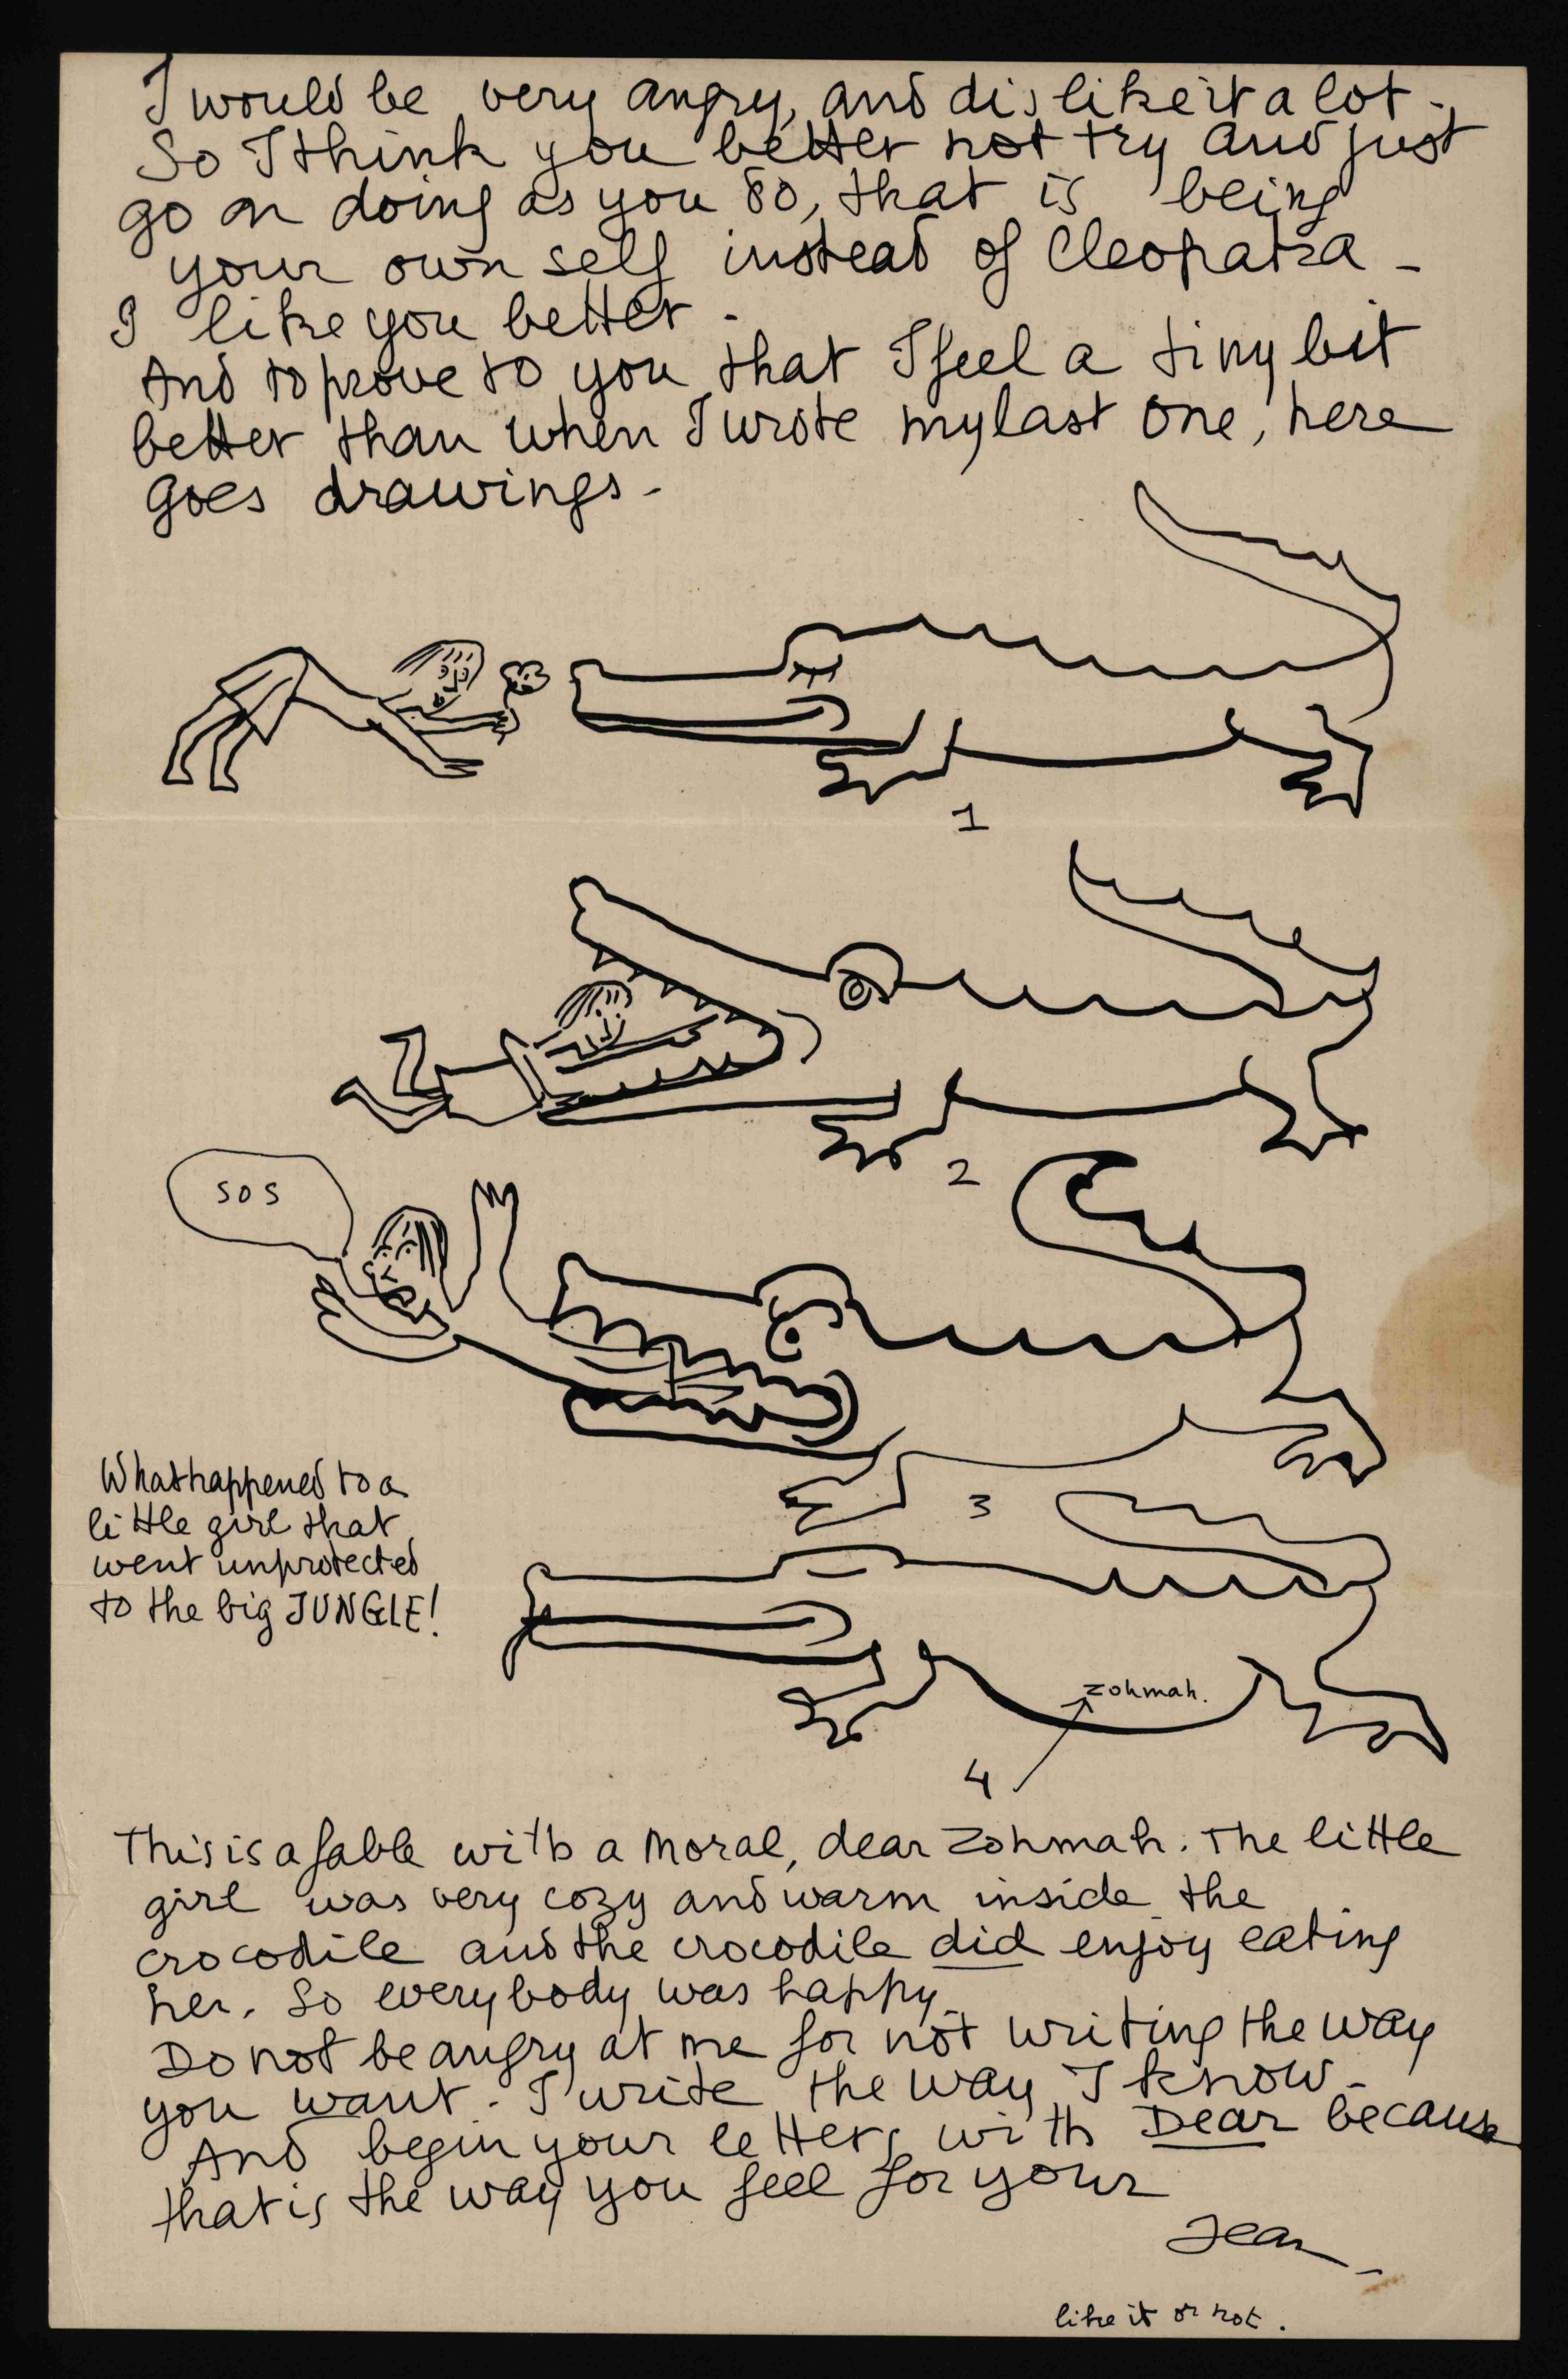 I would be very angry, and dislike it a lot -
So I think you better not try and just
go on doing as you do, that is being
your own self instead of Cleopatra -
I like you better -
And to prove to you that I feel a tiny bit
better than when I wrote my last one, here
goes drawings -
1
2
SOS
3
What happened to a
little girl that
went unprotected
to the big JUNGLE!
zohmah.
4
This is a fable with a moral, dear Zohmah. The little
girl was very cozy and warm inside the
crocodile and the crocodile did enjoy eating
her. So everybody was happy -
Do not be angry at me for not writing the way
you want - I write the way I know -
And begin your letters with Dear because
that is the way you feel for your
Jean -
like it or not.